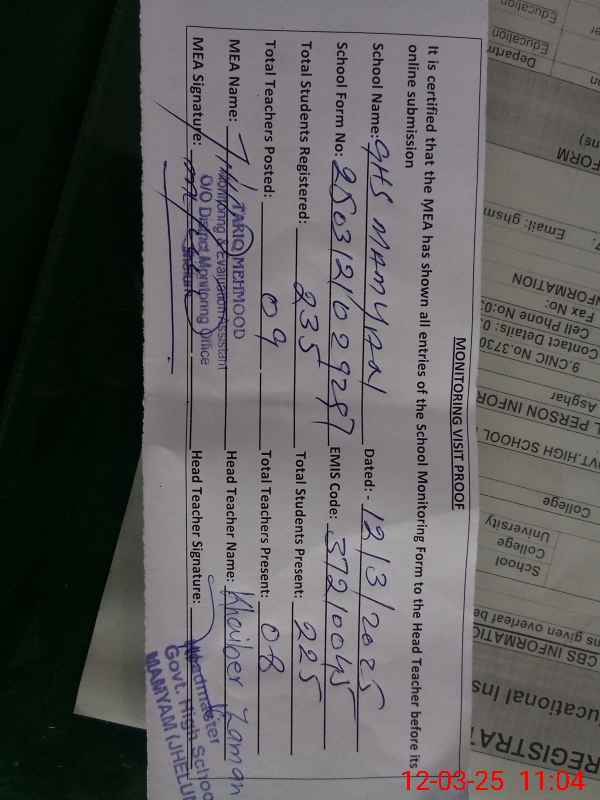 MONITORING VISIT PROOF
It is certified that the MEA has shown all entries of the School Monitoring Form to the Head Teacher before its
online submission
School Name: GHS MAMYAM Dated:- 12/3/2025
School Form No: 250312/029287 EMIS Code: 37210045
Total Students Registered: 235 Total Students Present: 225
Total Teachers Posted: 09 Total Teachers Present: 08
MEA Name: Head Teacher Name: Khaiber Zaman
MEA Signature: Head Teacher Signature:
TARIQ MEHMOOD
Monitoring & Evaluation Assistant
O/O District Monitoring Office
Jhelum
Headmaster
Govt. High School
MAMYAM (JHELUM
REGISTRAT
ucational Ins
CBS INFORMATIO
ns given overleaf be
School
College
University
College
VT.HIGH SCHOOL
L PERSON INFOR
Asghar
9.CNIC No.3730
Contact Details: 03
Cell Phone No:03
Fax No:
NFORMATION
7. Email: ghsm
FORM
ns)
Departm
Education
Education
12-03-25 11:04